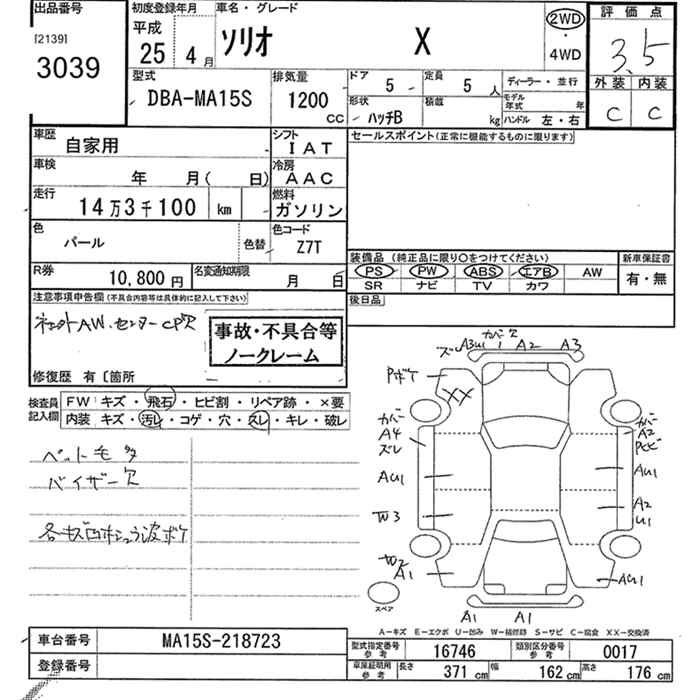 出品番号
[2139]
3039
初度登録年月
平成
25 4月
車名・グレード
ソリオ X
2WD
・
4WD
評価点
3.5
外装 内装
C C
型式
DBA-MA15S
排気量
1200
CC
ドア 5
定員 5 人
形状 ハッチB
積載 kg
ディーラー・並行
モデル年式 年
ハンドル 左・右
車歴 自家用
シフト IAT
車検 年 月( 日)
冷房 AAC
走行 14万3千100 km
燃料 ガソリン
色 パール 色替
色コード Z7T
R券 10,800円
名変通知期限 月 日
セールスポイント(正常に機能するものに限ります)
装備品(純正品に限り○をつけてください)
PS PW ABS エアB AW
SR ナビ TV カワ
新車保証書
有・無
後日品
注意事項申告欄(不具合内容等は具体的に記入して下さい)
AW、センターCP欠
事故・不具合等
ノークレーム
修復歴 有〔箇所
検査員
記入欄
FW キズ・飛石・ヒビ割・リペア跡・×要
内装 キズ・汚レ・コゲ・穴・スレ・キレ・破レ
ペット毛多
バイザー欠
カバー欠
ズ A3U1 A2 A3
Pボケ
XX
カバー
A4
ズレ
カバー
A2
PとビAU1
AU1
W3
A2
U1
W2
A1
AU1
スペア
A1 A1
A-キズ E-エクボ U-凹み W-補修跡 S-サビ C-腐食 XX-交換済
車台番号 MA15S-218723
登録番号
型式指定番号
参考
16746
類別区分番号
参考
0017
車庫証明用
参考
長さ 371 cm 幅 162 cm 高さ 176 cm